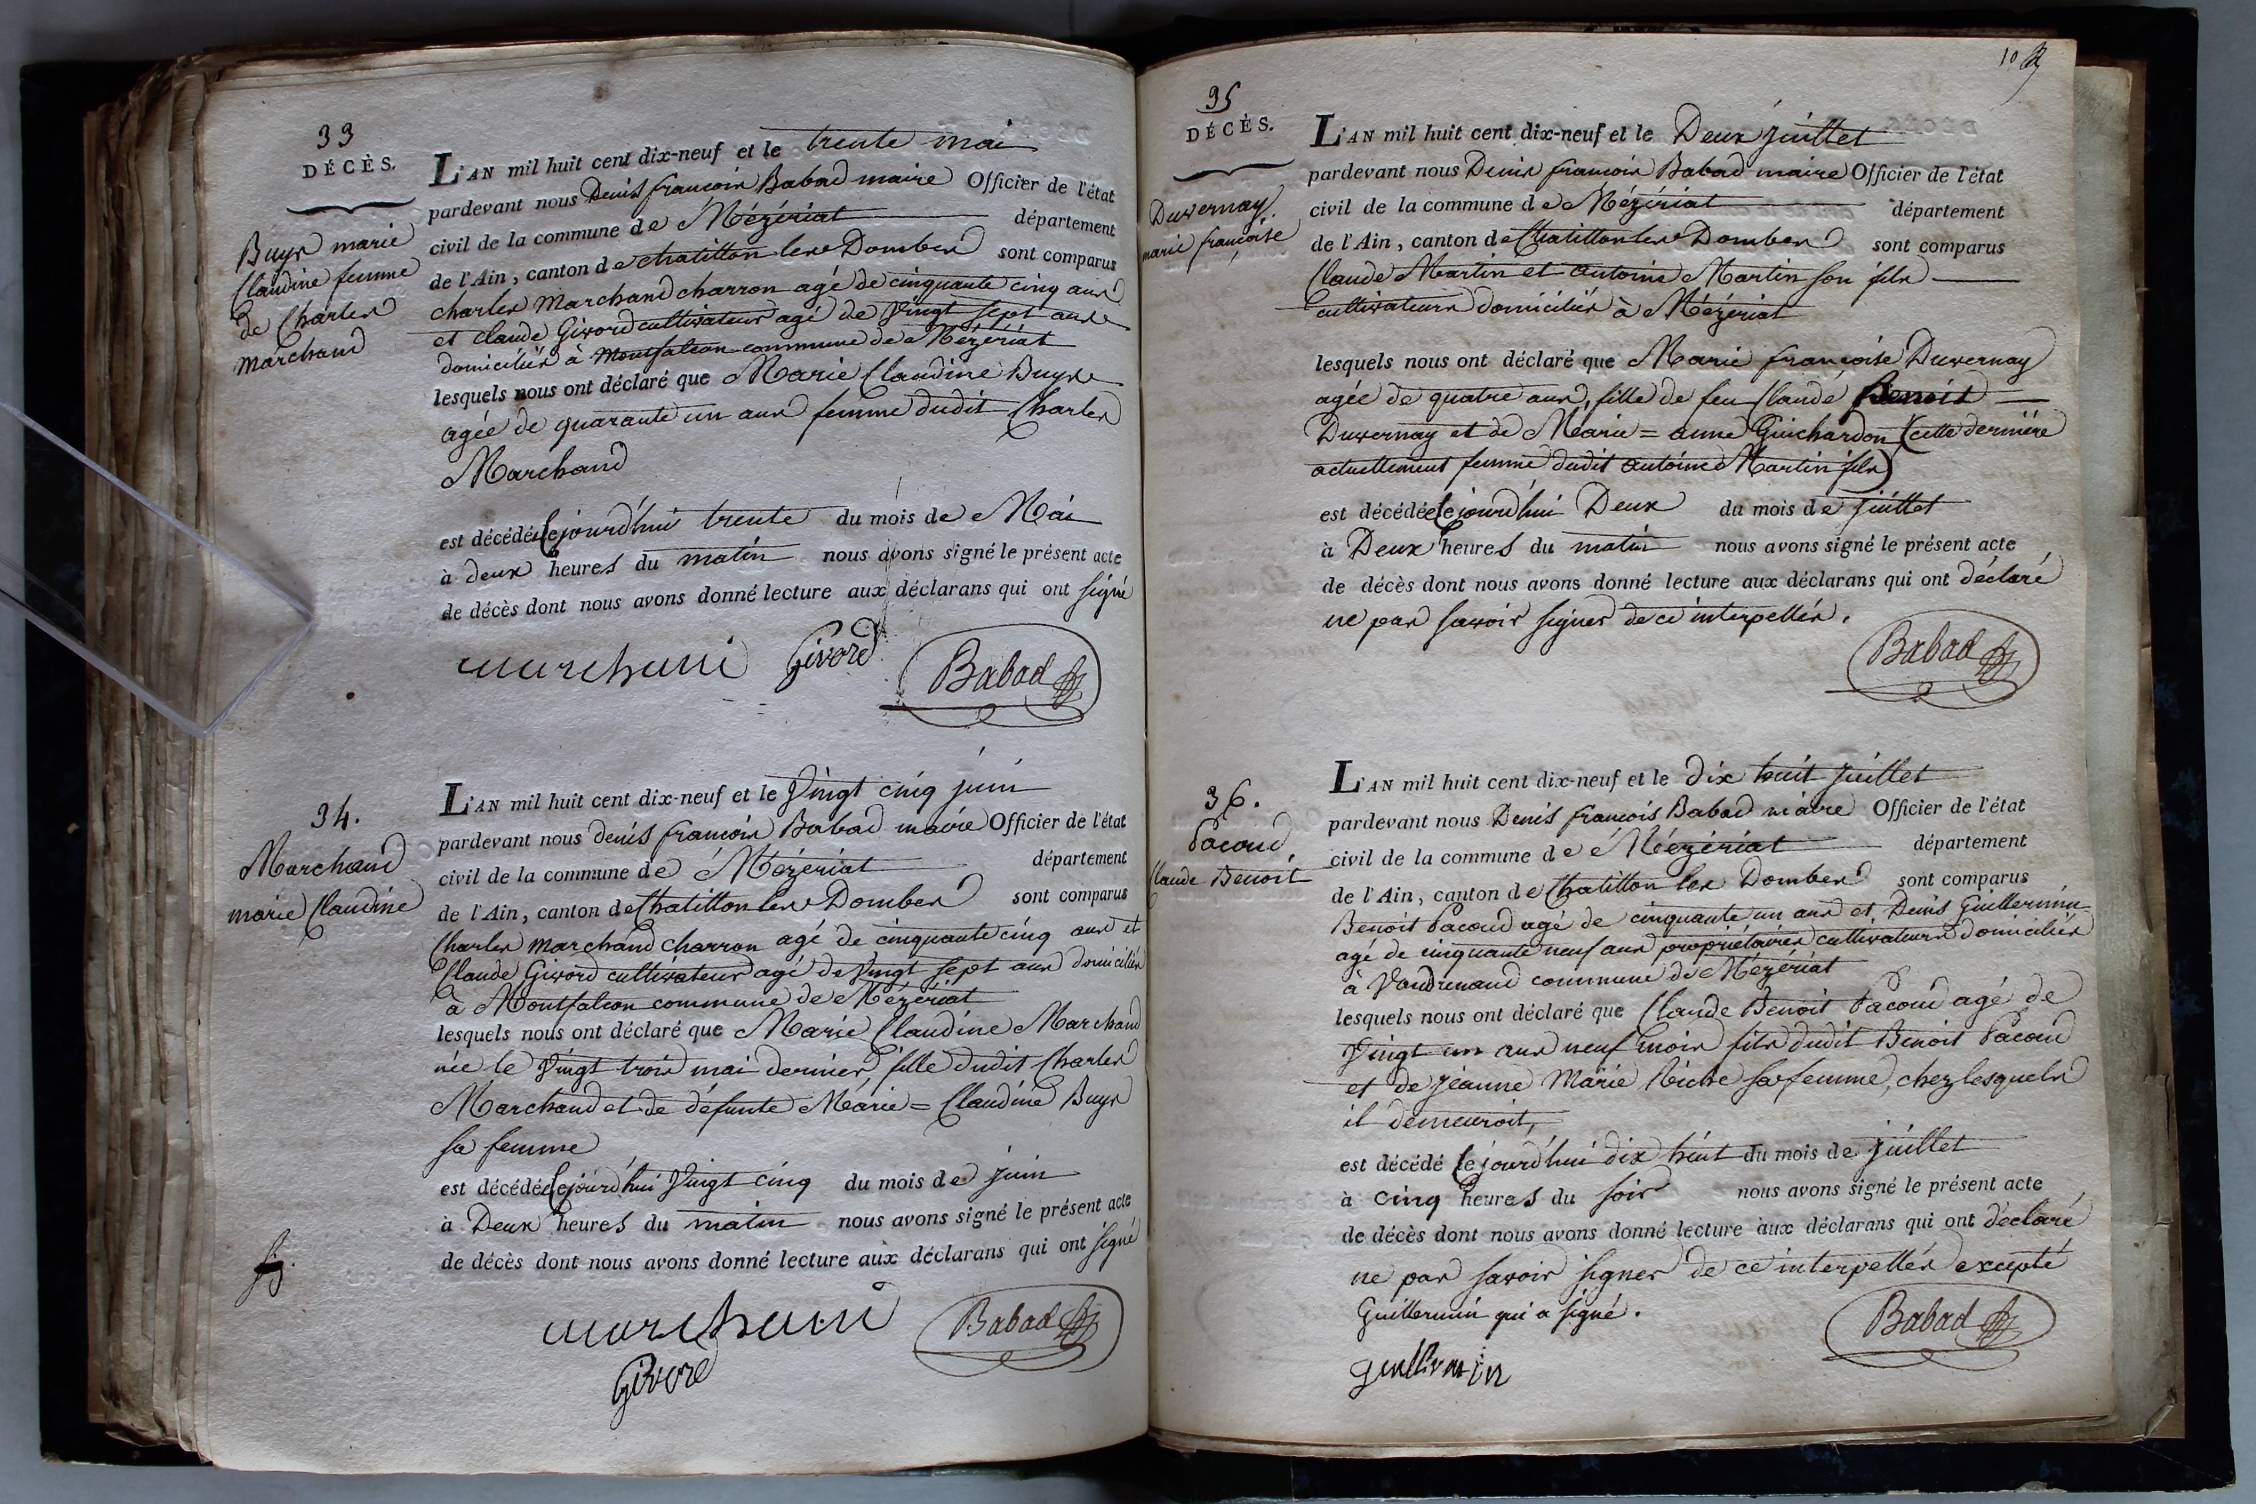 33
DÉCÈS.
Buys marie
Claudine femme
de Charles
Marchand
L'AN mil huit cent dix-neuf et le trente mai
pardevant nous Denis françois Babad maire Officier de l'état
civil de la commune de Mézériat département
de l'Ain, canton de chatillon les Dombes sont comparus
charles Marchand charron agé de cinquante cinq ans
et claude Givord cultivateur agé de Vingt sept ans
domiciliés à Montfalcon commune de Mézériat
lesquels nous ont déclaré que Marie Claudine Buys
agée de quarante un ans femme dudit Charles
Marchand
est décédée Cejourd'hui trente du mois de Mai
à deux heures du matin nous avons signé le présent acte
de décès dont nous avons donné lecture aux déclarans qui ont signé
marchand Givord Babad
34.
Marchand
marie Claudine
L'AN mil huit cent dix-neuf et le Vingt cinq juin
pardevant nous denis françois Babad maire Officier de l'état
civil de la commune de Mézériat département
de l'Ain, canton de Chatillon les Dombes sont comparus
Charles Marchand charron agé de cinquante cinq ans et
Claude Givord cultivateur agé de Vingt sept ans domiciliés
à Montfalcon commune de Mézériat
lesquels nous ont déclaré que Marie Claudine Marchand
née le Vingt trois mai dernier fille dudit Charles
Marchand et de défunte Marie=Claudine Buys
sa femme
est décédée Cejourd'hui Vingt cinq du mois de juin
à Deux heures du matin nous avons signé le présent acte
de décès dont nous avons donné lecture aux déclarans qui ont signé
marchand Babad
Givord
10
35
DÉCÈS.
Duvernay
marie françoise
L'AN mil huit cent dix-neuf et le Deux juillet
pardevant nous Denis françois Babad maire Officier de l'état
civil de la commune de Mézériat département
de l'Ain, canton de Chatillon les Dombes sont comparus
Claude Martin et antoine Martin son fils
cultivateurs domiciliés à Mézériat
lesquels nous ont déclaré que Marie françoise Duvernay
agée de quatre ans, fille de feu Claude Benoit
Duvernay et de Marie=anne Guichardon (cette dernière
actuellement femme dudit antoine Martin fils)
est décédée Cejourd'hui Deux du mois de juillet
à Deux heures du matin nous avons signé le présent acte
de décès dont nous avons donné lecture aux déclarans qui ont déclaré
ne pas savoir signer de ce interpellés.
Babad
36.
Pacoud
Claude Benoit
L'AN mil huit cent dix-neuf et le dix huit juillet
pardevant nous Denis françois Babad maire Officier de l'état
civil de la commune de Mézériat département
de l'Ain, canton de Chatillon les Dombes sont comparus
Benoit Pacoud agé de cinquante un ans et Denis Guillermin
agé de cinquante neuf ans propriétaires cultivateurs domiciliés
à commune de Mézériat
lesquels nous ont déclaré que Claude Benoit Pacoud agé de
Vingt un ans neuf mois fils dudit Benoit Pacoud
et de jeanne Marie sa femme, chez lesquels
il demeuroit,
est décédé Cejourd'hui dix huit du mois de juillet
à cinq heures du soir nous avons signé le présent acte
de décès dont nous avons donné lecture aux déclarans qui ont déclaré
ne pas savoir signer de ce interpellés excepté
Guillermin qui a signé.
Babad
guillermin